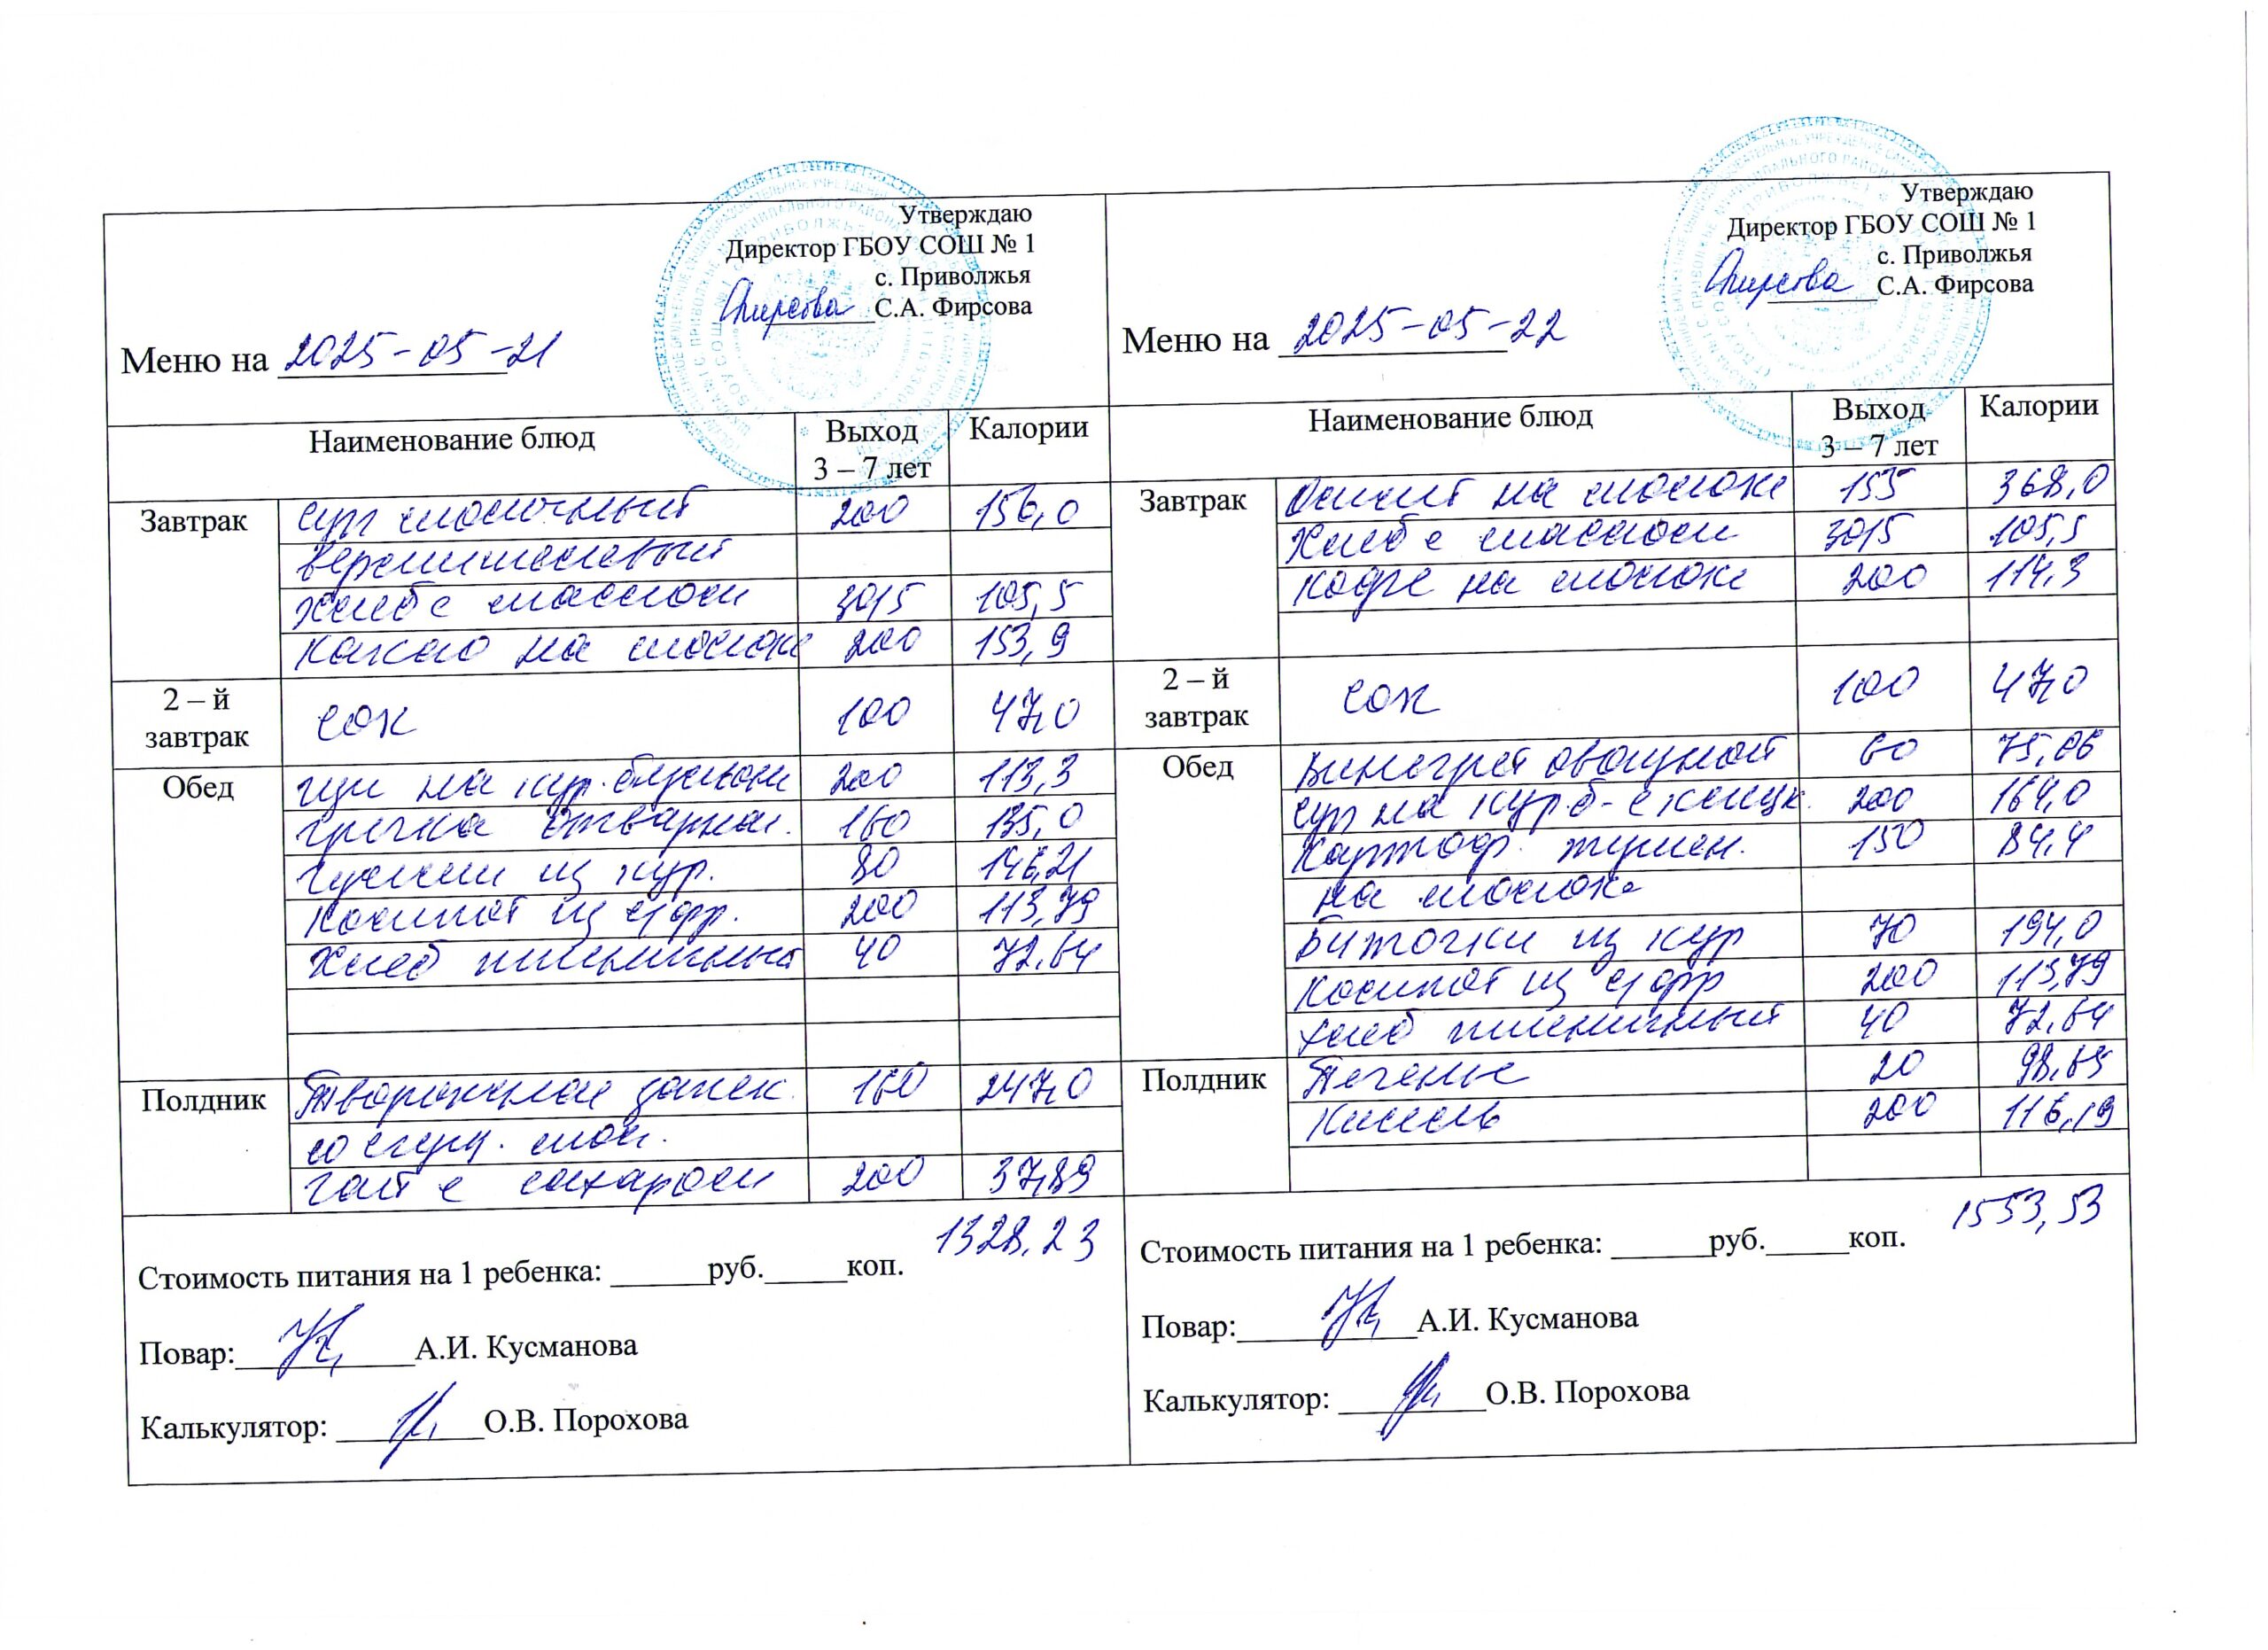 Утверждаю
Директор ГБОУ СОШ № 1
с. Приволжья
С.А. Фирсова
Меню на 2025-05-21
Наименование блюд Выход 3 – 7 лет Калории
Завтрак суп молочный 200 156,0
вермишелевый
Хлеб с маслом 30/5 105,5
Какао на молоке 200 153,9
2 – й завтрак сок 100 47,0
Обед щи на кур. бульоне 200 113,3
гречка отварная. 160 135,0
Гуляш из кур. 80 146,21
Компот из с/фр. 200 113,79
Хлеб пшеничный 40 72,64
Полдник Творожная запек. 160 247,0
со сгущ. мол.
Чай с сахаром 200 37,89
1328,23
Стоимость питания на 1 ребенка: ______руб._____коп.
Повар: А.И. Кусманова
Калькулятор: О.В. Порохова
Утверждаю
Директор ГБОУ СОШ № 1
с. Приволжья
С.А. Фирсова
Меню на 2025-05-22
Наименование блюд Выход 3 – 7 лет Калории
Завтрак Омлет на молоке 155 368,0
Хлеб с маслом 30/5 105,5
Кофе на молоке 200 114,3
2 – й завтрак сок 100 47,0
Обед Винегрет овощной 60 75,06
суп на кур.б-е клецк. 200 164,0
Картоф. тушен. 150 84,4
на молоке
Биточки из кур 70 194,0
Компот из с/фр 200 113,79
хлеб пшеничный 40 72,64
Полдник Печенье 20 98,65
Кисель 200 116,19
1553,53
Стоимость питания на 1 ребенка: ______руб._____коп.
Повар: А.И. Кусманова
Калькулятор: О.В. Порохова